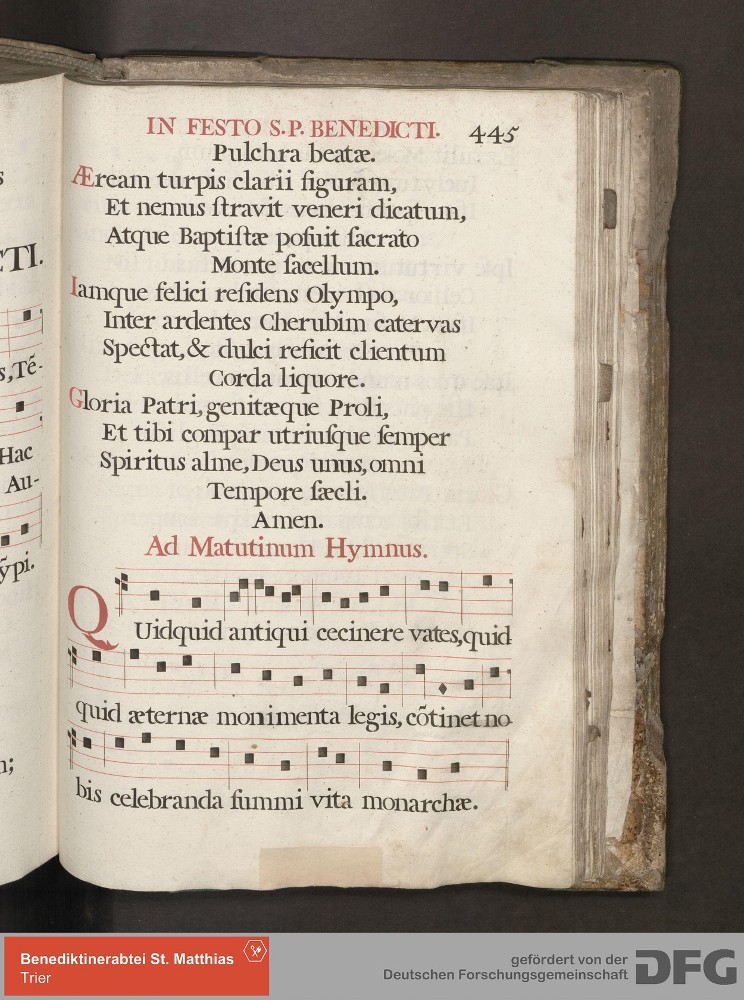 CTI.
s, Tē-
Hac
Au-
ÿpi.
IN FESTO S.P. BENEDICTI. 445
Pulchra beatæ.
Æream turpis clarii figuram,
Et nemus ſtravit veneri dicatum,
Atque Baptiſtæ poſuit ſacrato
Monte ſacellum.
Iamque felici reſidens Olympo,
Inter ardentes Cherubim catervas
Spectat, & dulci reficit clientum
Corda liquore.
Gloria Patri, genitæque Proli,
Et tibi compar utriuſque ſemper
Spiritus alme, Deus unus, omni
Tempore ſæcli.
Amen.
Ad Matutinum Hymnus.
QUidquid antiqui cecinere vates, quid
quid æternæ monimenta legis, cõtinet no-
bis celebranda ſummi vita monarchæ.
Benediktinerabtei St. Matthias
Trier
gefördert von der
Deutschen Forschungsgemeinschaft DFG